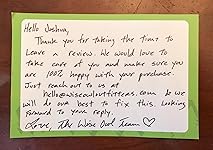 Hello Joshua,
Thank you for taking the time to
leave a review. We would love to
take care of you and make sure you
are 100% happy with your purchase.
Just reach out to us at
hello@wiseowloutfitters.com & we
will do our best to fix this. Looking
forward to your reply.
Love, The Wise Owl Team ♡